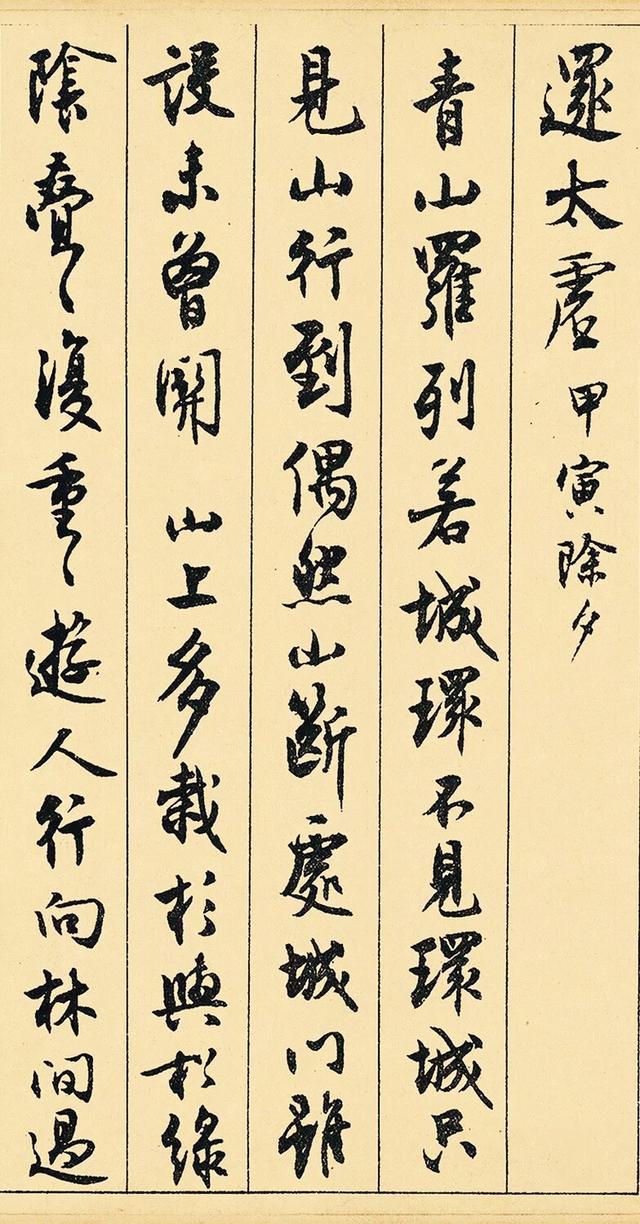 還太虛甲寅除夕
青山羅列若城環不見環城只
見山行到偶然山斷處城門雖
設未曾開 山上多栽杉與松綠
陰疊〻復重〻遊人行向林間過